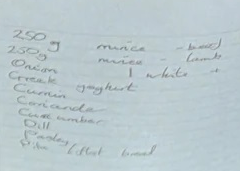 250 g mince - beef
250g mince - lamb
Onion 1 white +
Greek yoghurt
Cumin
Coriander
Cucumber
Dill
Parsley
Pita / flat bread